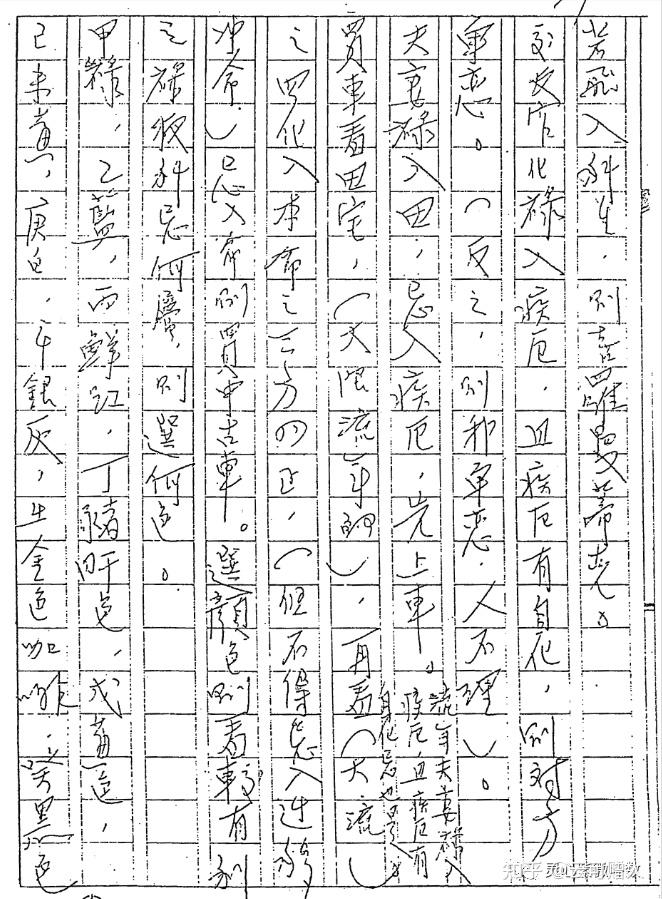 若飛入科，則喜羅曼蒂克。
交友宮化祿入疾厄，且疾厄有自化，則対方
單戀。（反之，則單戀，人不理）。
夫妻祿入田，忌入疾厄，先上車。
流年夫妻祿入
疾厄且疾厄有
自化忌也是。
買車看田宅，（大限流年），再看（大、流）
之四化入本命之三方四正，（但不得忌入遷移
沖命）忌入命則買中古車。選顏色則看有利
之祿權科忌何曜，則選何色。
甲綠，乙藍，丙鮮紅，丁豬肝色，戊黃色，
己黃，庚白，辛銀灰，壬金色咖啡，癸黑色
知乎